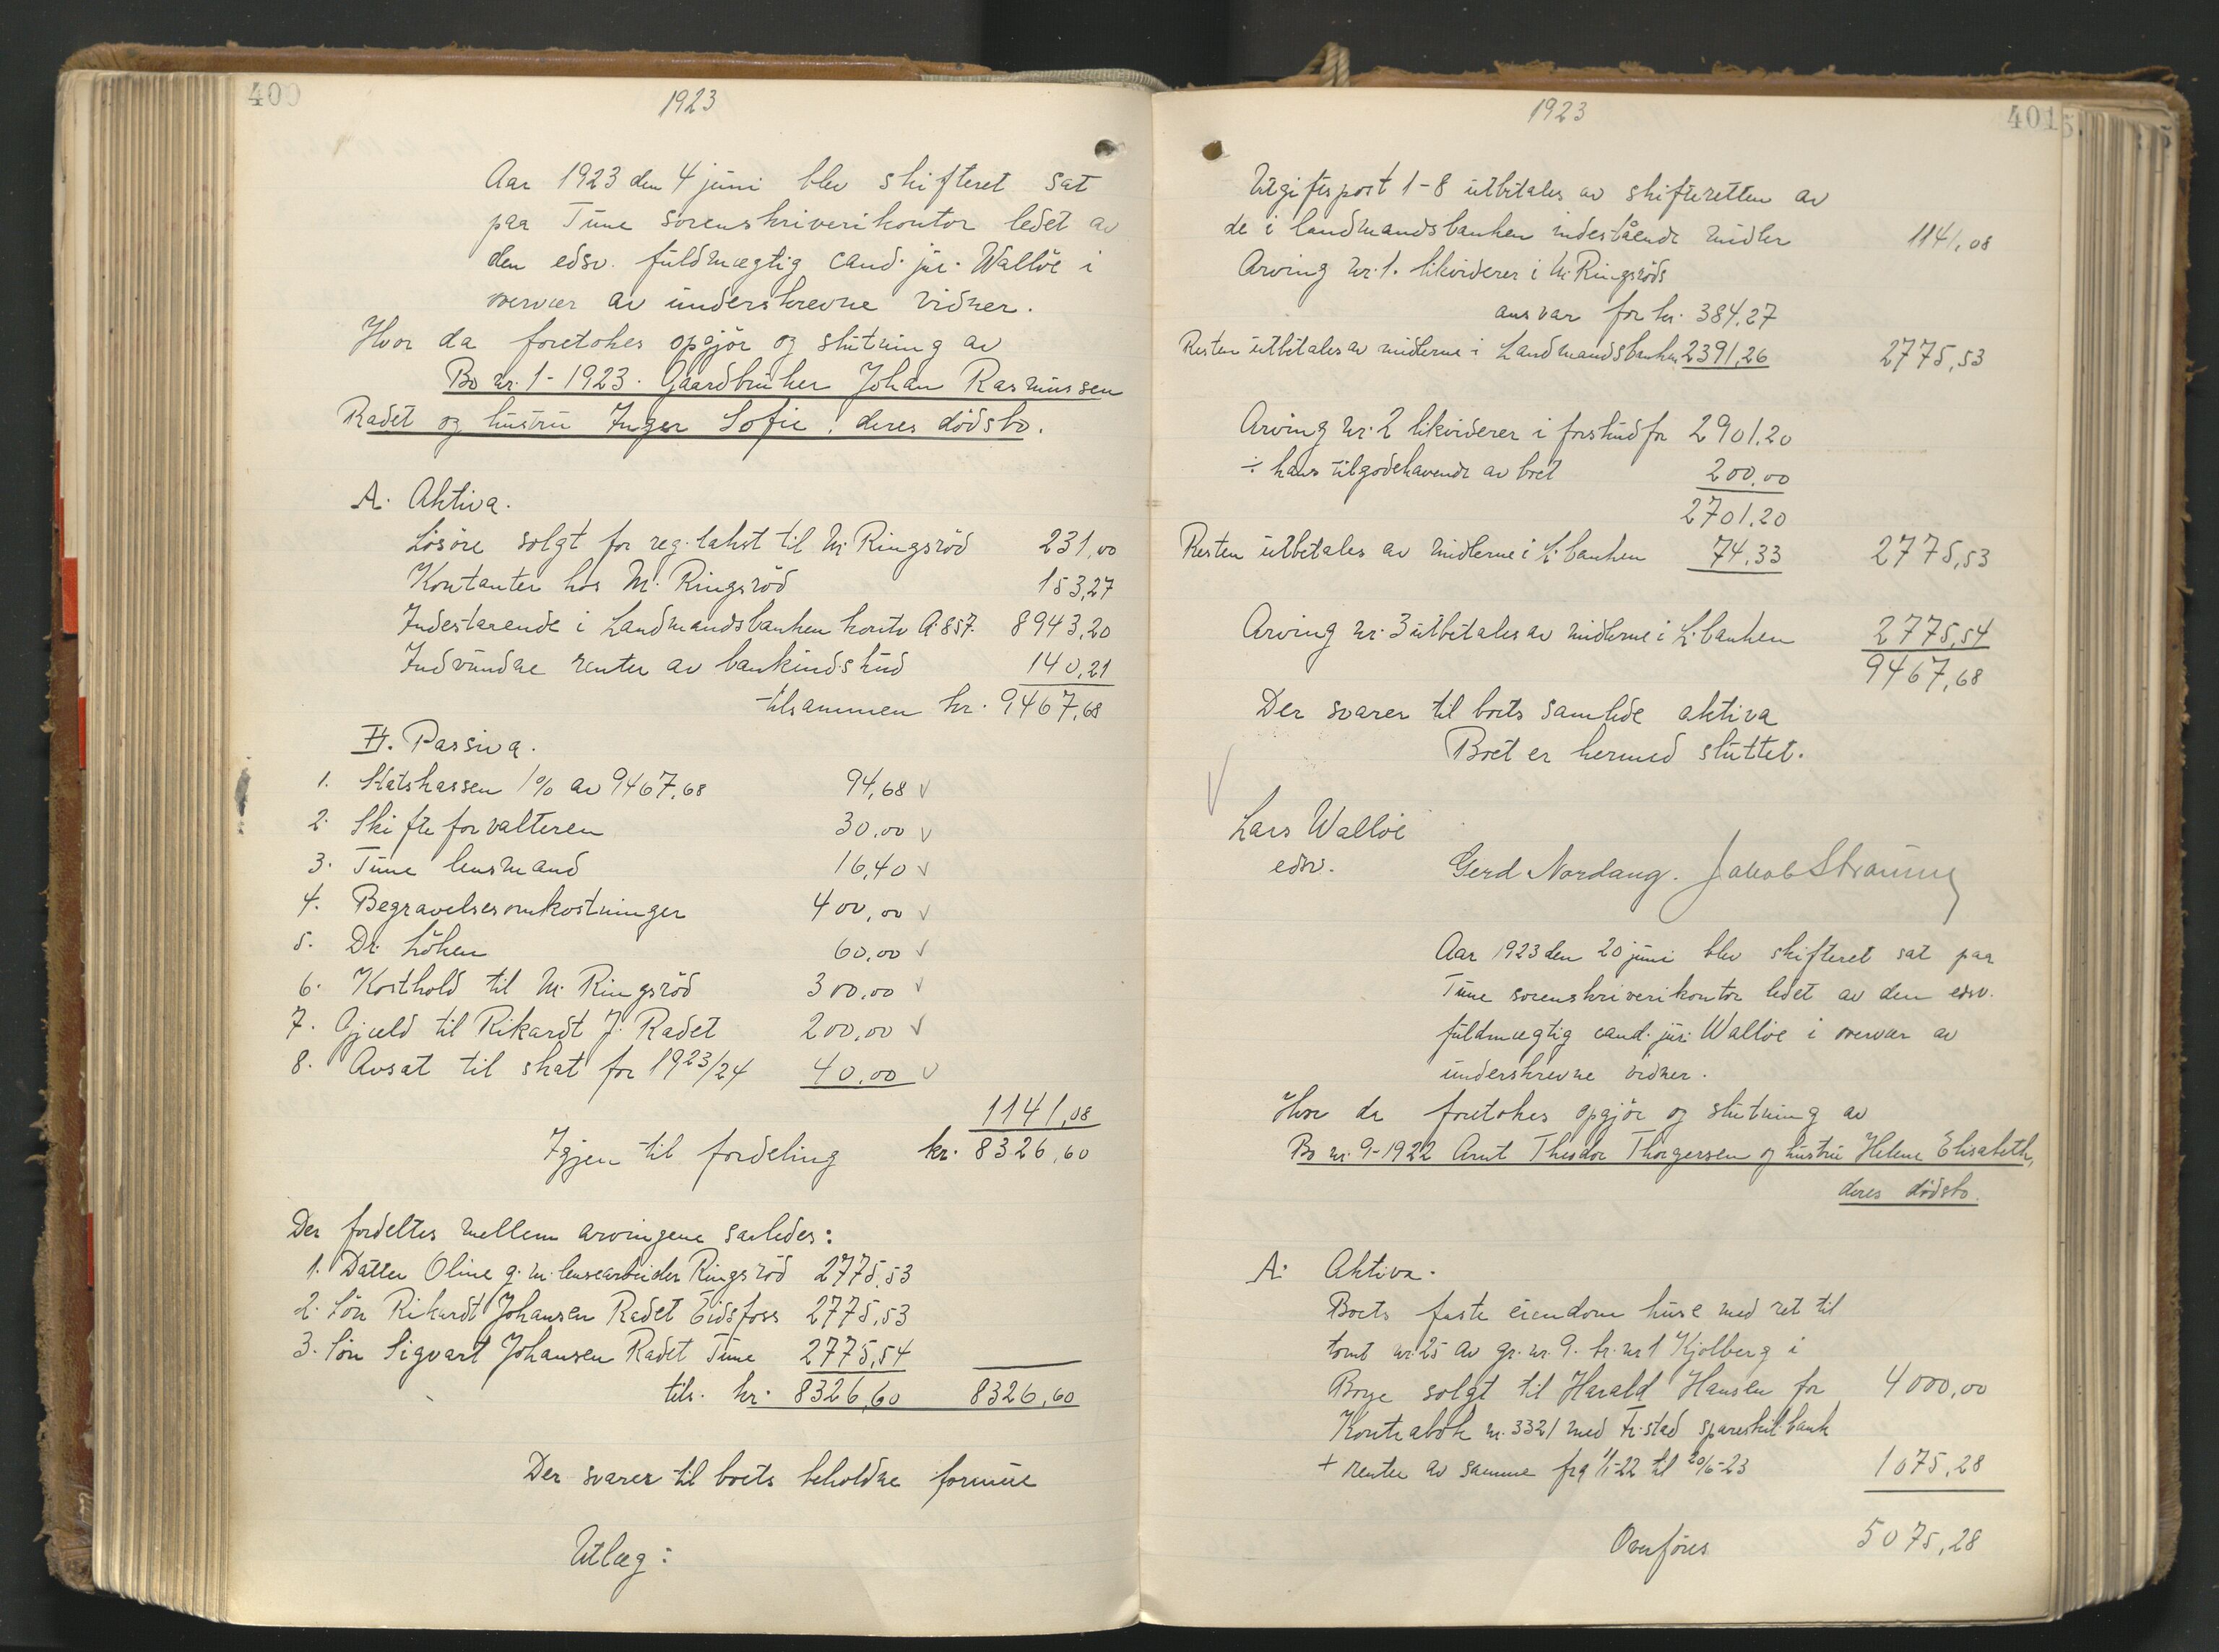 400
1923
Aar 1923 den 4 juni blev skifteret sat
paa Tune sorenskriverikontor ledet av
den edsv. fuldmægtig cand. jur. Walløe i
overvær av underskrevne vidner.
Hvor da foretokes opgjör og slutning av
Bo nr. 1-1923. Gaardbruker Johan Rasmussen
Radet og hustru Inger Sofie: deres dödsbo.
A. Aktiva.
Lösöre solgt for reg. takst til M. Ringsröd 231,00
Kontanter hos M. Ringsröd 153,27
Indestaaende i Landmandsbanken konto A. 857. 8943,20
Indvundne renter av bankindskud 140,21
tilsammen kr. 9467,68
II. Passiva.
1. Statskassen 1% av 9467,68 94,68 v
2. Skifteforvalteren 30,00 v
3. Tune lensmand 16,40 v
4. Begravelsesomkostninger 400,00 v
5. Dr. Löken 60,00 v
6. Kosthold til M. Ringsröd 300,00 v
7. Gjæld til Rikardt J. Radet 200,00 v
8. Avsat til skat for 1923/24 40,00 v
1141,08
Igjen til fordeling kr. 8326,60
Der fordeltes mellem arvingene saaledes:
1. Datter Oline g. m. lensearbeider Ringsröd 2775,53
2. Sön Rikardt Johansen Radet Eidsfoss 2775,53
3. Sön Sigvart Johansen Radet Tune 2775,54
tils. kr. 8326,60 8326,60
Der svarer til boets beholdne formue
Utlæg:
1923
401
Utgiftspost 1-8 utbetales av skifteretten av
de i landmandsbanken indestående midler 1141,08
Arving nr. 1. likviderer i M. Ringsröds
ansvar for kr. 384,27
Resten utbetales av midlerne i Landmandsbanken 2391,26 2775,53
Arving nr. 2 likviderer i forskud for 2901,20
÷ hans tilgodehavende av boet 200,00
2701,20
Resten utbetales av midlerne i L. banken 74,33 2775,53
Arving nr. 3 utbetales av midlerne i L. banken 2775,54
9467,68
Der svarer til boets samlede aktiva
Boet er hermed sluttet.
Lars Walløe
edsv.
Gerd Nordang. Jakob
Aar 1923 den 20 juni blev skifteret sat paa
Tune sorenskriverikontor ledet av den edsv.
fuldmægtig cand. jur. Walløe i overvær av
underskrevne vidner.
Hvor da foretokes opgjör og slutning av
Bo nr. 9-1922 Arnt Theodor Thorgersen og hustru Helene Elisabeth,
deres dödsbo.
A. Aktiva.
Boets faste eiendom huse med ret til
tomt nr. 25 av gr. nr. 9. br. nr 1 Kjölberg i
Borge solgt til Harald Hansen for 4000,00
Kontrabok nr. 3321 med Fr.stad spareskil.bank
+ renter av samme fra 1/1-22 til 20/6-23 1075,28
Overföres 5075,28